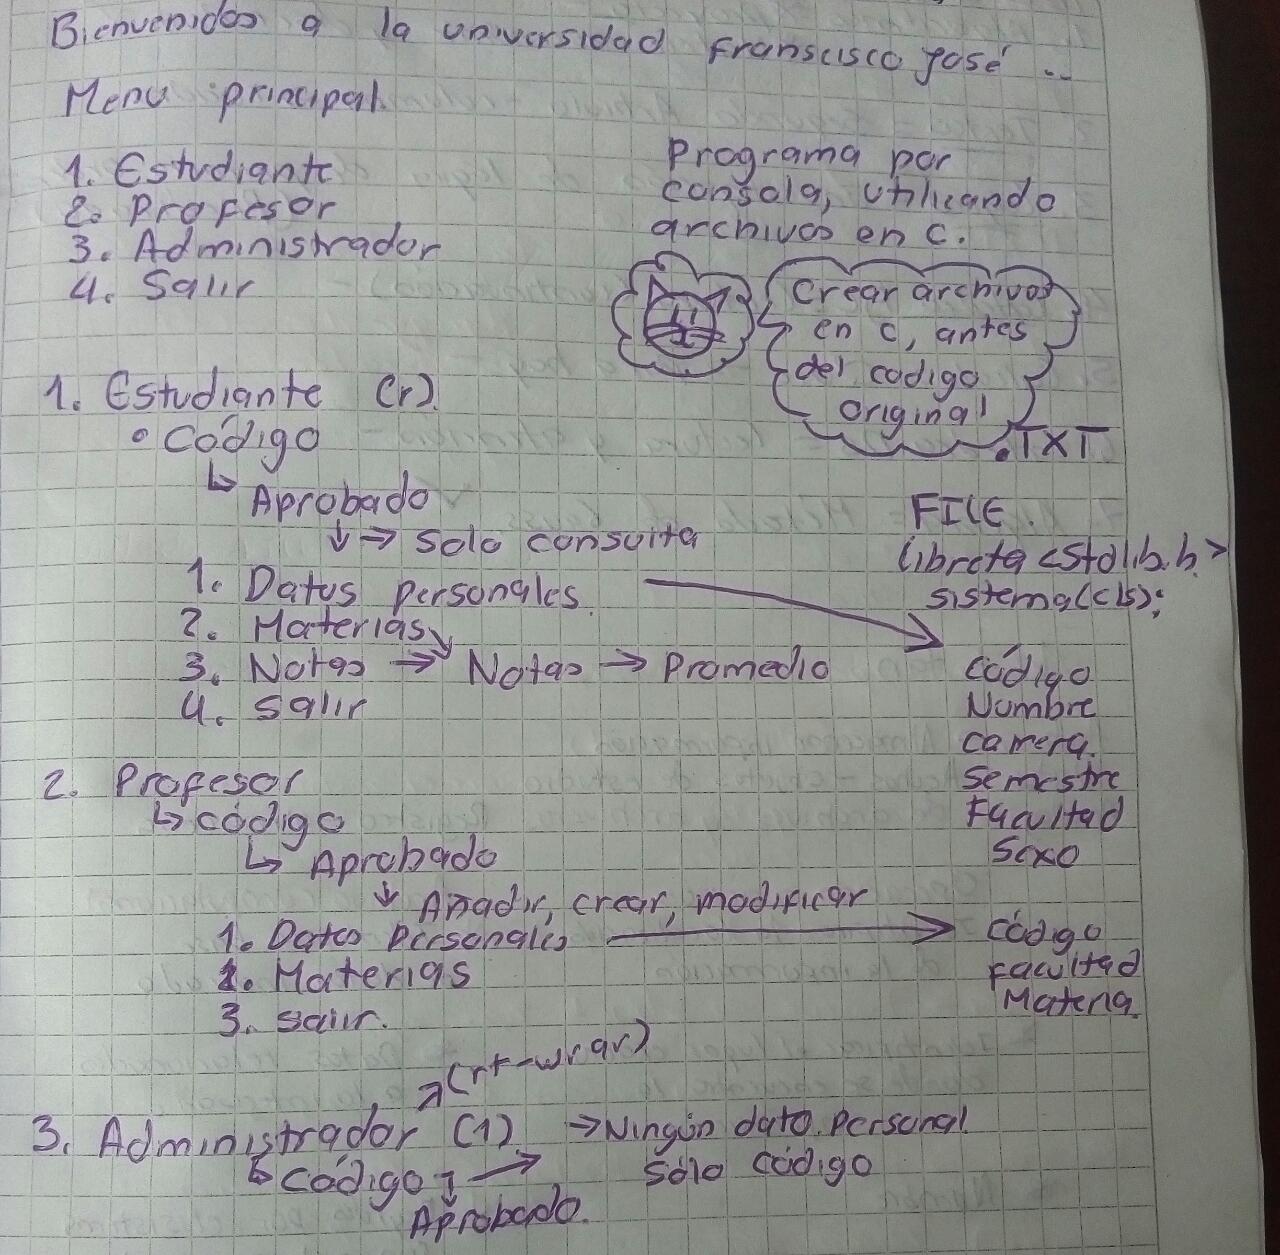 Bienvenidos a la universidad Franscisco José ...
Menu principal
1. Estudiante
2. Profesor
3. Administrador
4. Salir
Programa por
consola, utilizando
archivos en c.
Crear archivos
en c, antes
del codigo
original
.TXT
1. Estudiante (r)
• Código
↳ Aprobado
↓ → Solo consulta
1. Datos personales.
2. Materias
3. Notas → Notas → Promedio
4. Salir
FILE.
libreta <stdlib.h>
sistema(cls);
Código
Nombre
carrera.
Semestre
Facultad
Sexo
2. Profesor
↳ código
↳ Aprobado
↓ Añadir, crear, modificar
1. Datos Personales
2. Materias
3. Salir.
código
Facultad
Materia.
(r+-wr ar)
3. Administrador (1) → Ningún dato personal
↳ Código → Sólo código
Aprobado.